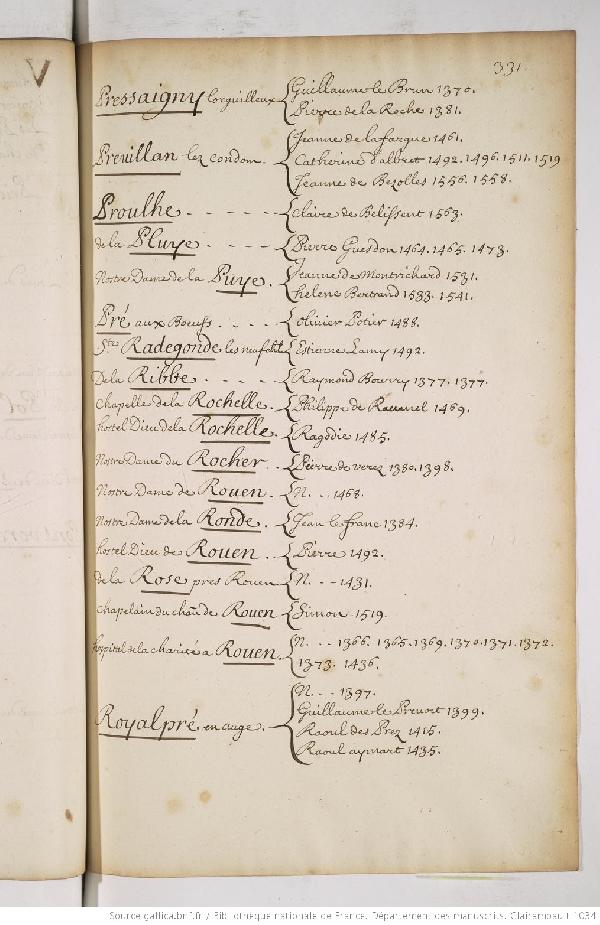 V
331.
Pressaigny lorguilleux { Guillaume le Brun 1370.
Pierre de la Roche 1381.
Jeanne de lafargue 1461.
Preuillan lez condom. { Catherine d'albret 1492. 1496. 1511. 1519
Jeanne de Bezolles 1556. 1558.
Proulhe - - - - - { Claire de Belissent 1563.
de la Pluye - - - - { Pierre Guesdon 1464. 1465. 1473.
Nostre Dame de la Puye. { Jeanne De Montrichard 1531.
helene Bertrand 1533. 1541.
Pré aux Boeufs. - - - { Olivier Potier 1488.
Ste Radegonde les { Estienne Lamy 1492.
De la Ribbe - - - - { Raymond Bourry 1377. 1377.
Chapelle de la Rochelle. { Philippe de 1469.
hostel Dieu de la Rochelle. { Ragddie 1485.
Nostre Dame du Rocher. - { Pierre de verez 1380. 1398.
Nostre Dame de Rouen. - { N. - - 1468.
Nostre Dame de la Ronde. - { Jean le franc 1384.
hostel Dieu de Rouen. - { Pierre 1492.
de la Rose pres Rouen { N. - - - 1431.
Chapelain du de Rouen { Simon 1519.
hospital de la charité a Rouen { N. - - - 1366. 1365. 1369. 1370. 1371. 1372.
1373. 1436.
N. - - - 1397.
Royalpré en auge. { Guillaume le Prevost 1399.
Raoul des Prez 1415.
Raoul aymart 1435.
Source gallica.bnf.fr / Bibliothèque nationale de France. Département des manuscrits. Clairambault 1034